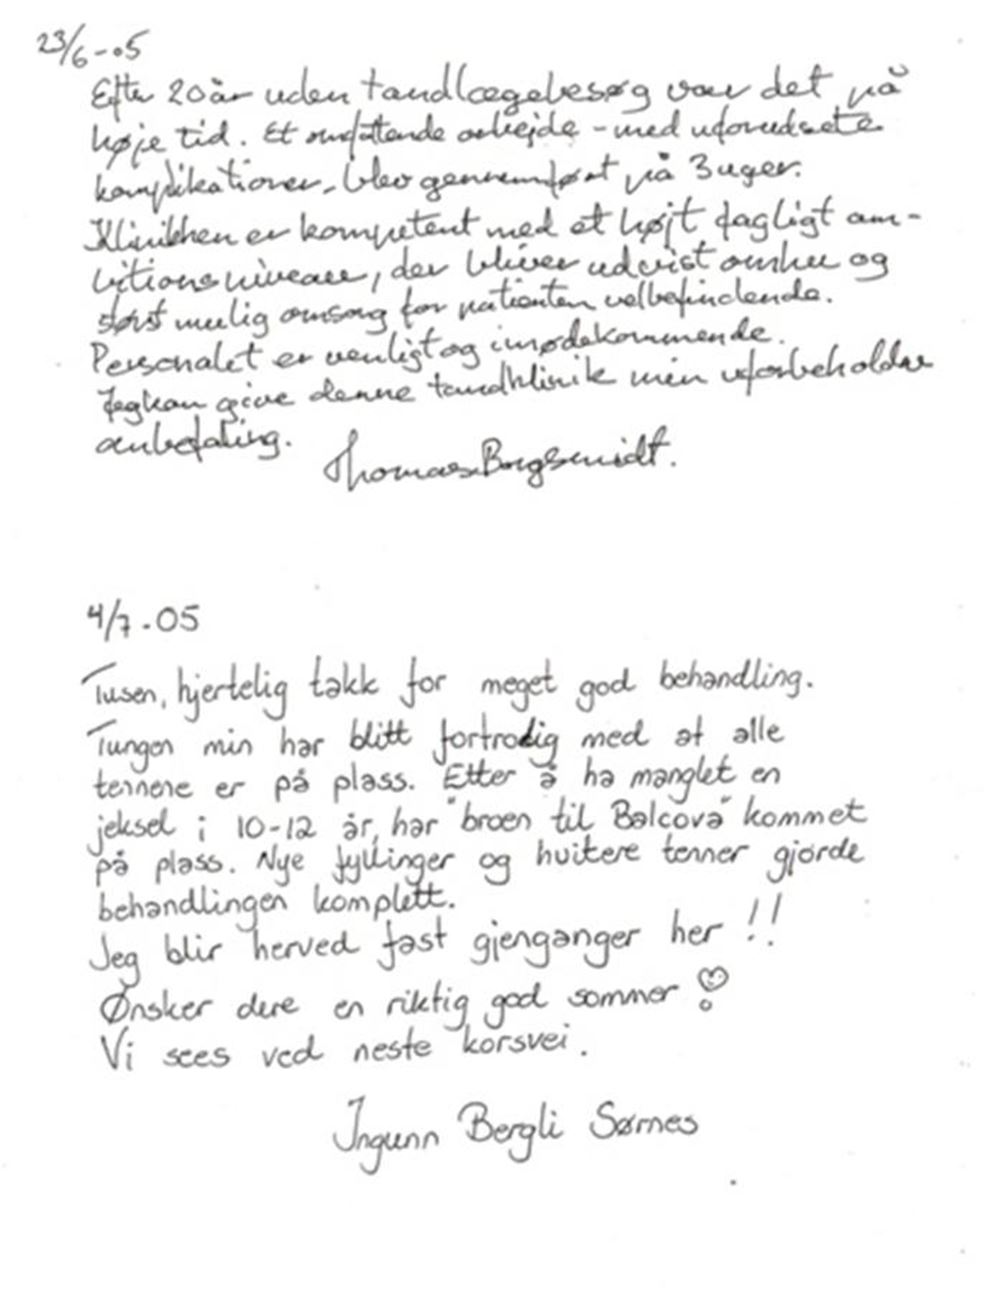 23/6-05
Efter 20 år uden tandlægebesøg var det på
høje tid. Et omfattende arbejde - med uforudsete
komplikationer, blev gennemført på 3 uger.
Klinikken er kompetent med et højt fagligt am-
bitionsniveau, der bliver udvist omhu og
størst mulig omsorg for patienten velbefindende.
Personalet er venligt og imødekommende.
Jeg kan give denne tandklinik min uforbeholdne
anbefaling.
Thomas Borgsmidt.
4/7-05
Tusen, hjertelig takk for meget god behandling.
Tungen min har blitt fortrodig med at alle
tennene er på plass. Etter å ha manglet en
jeksel i 10-12 år, har "broen til Balcova" kommet
på plass. Nye fyllinger og hvitere tenner gjorde
behandlingen komplett.
Jeg blir herved fast gjenganger her !!
Ønsker dere en riktig god sommer
Vi sees ved neste korsvei.
Ingunn Bergli Sørnes